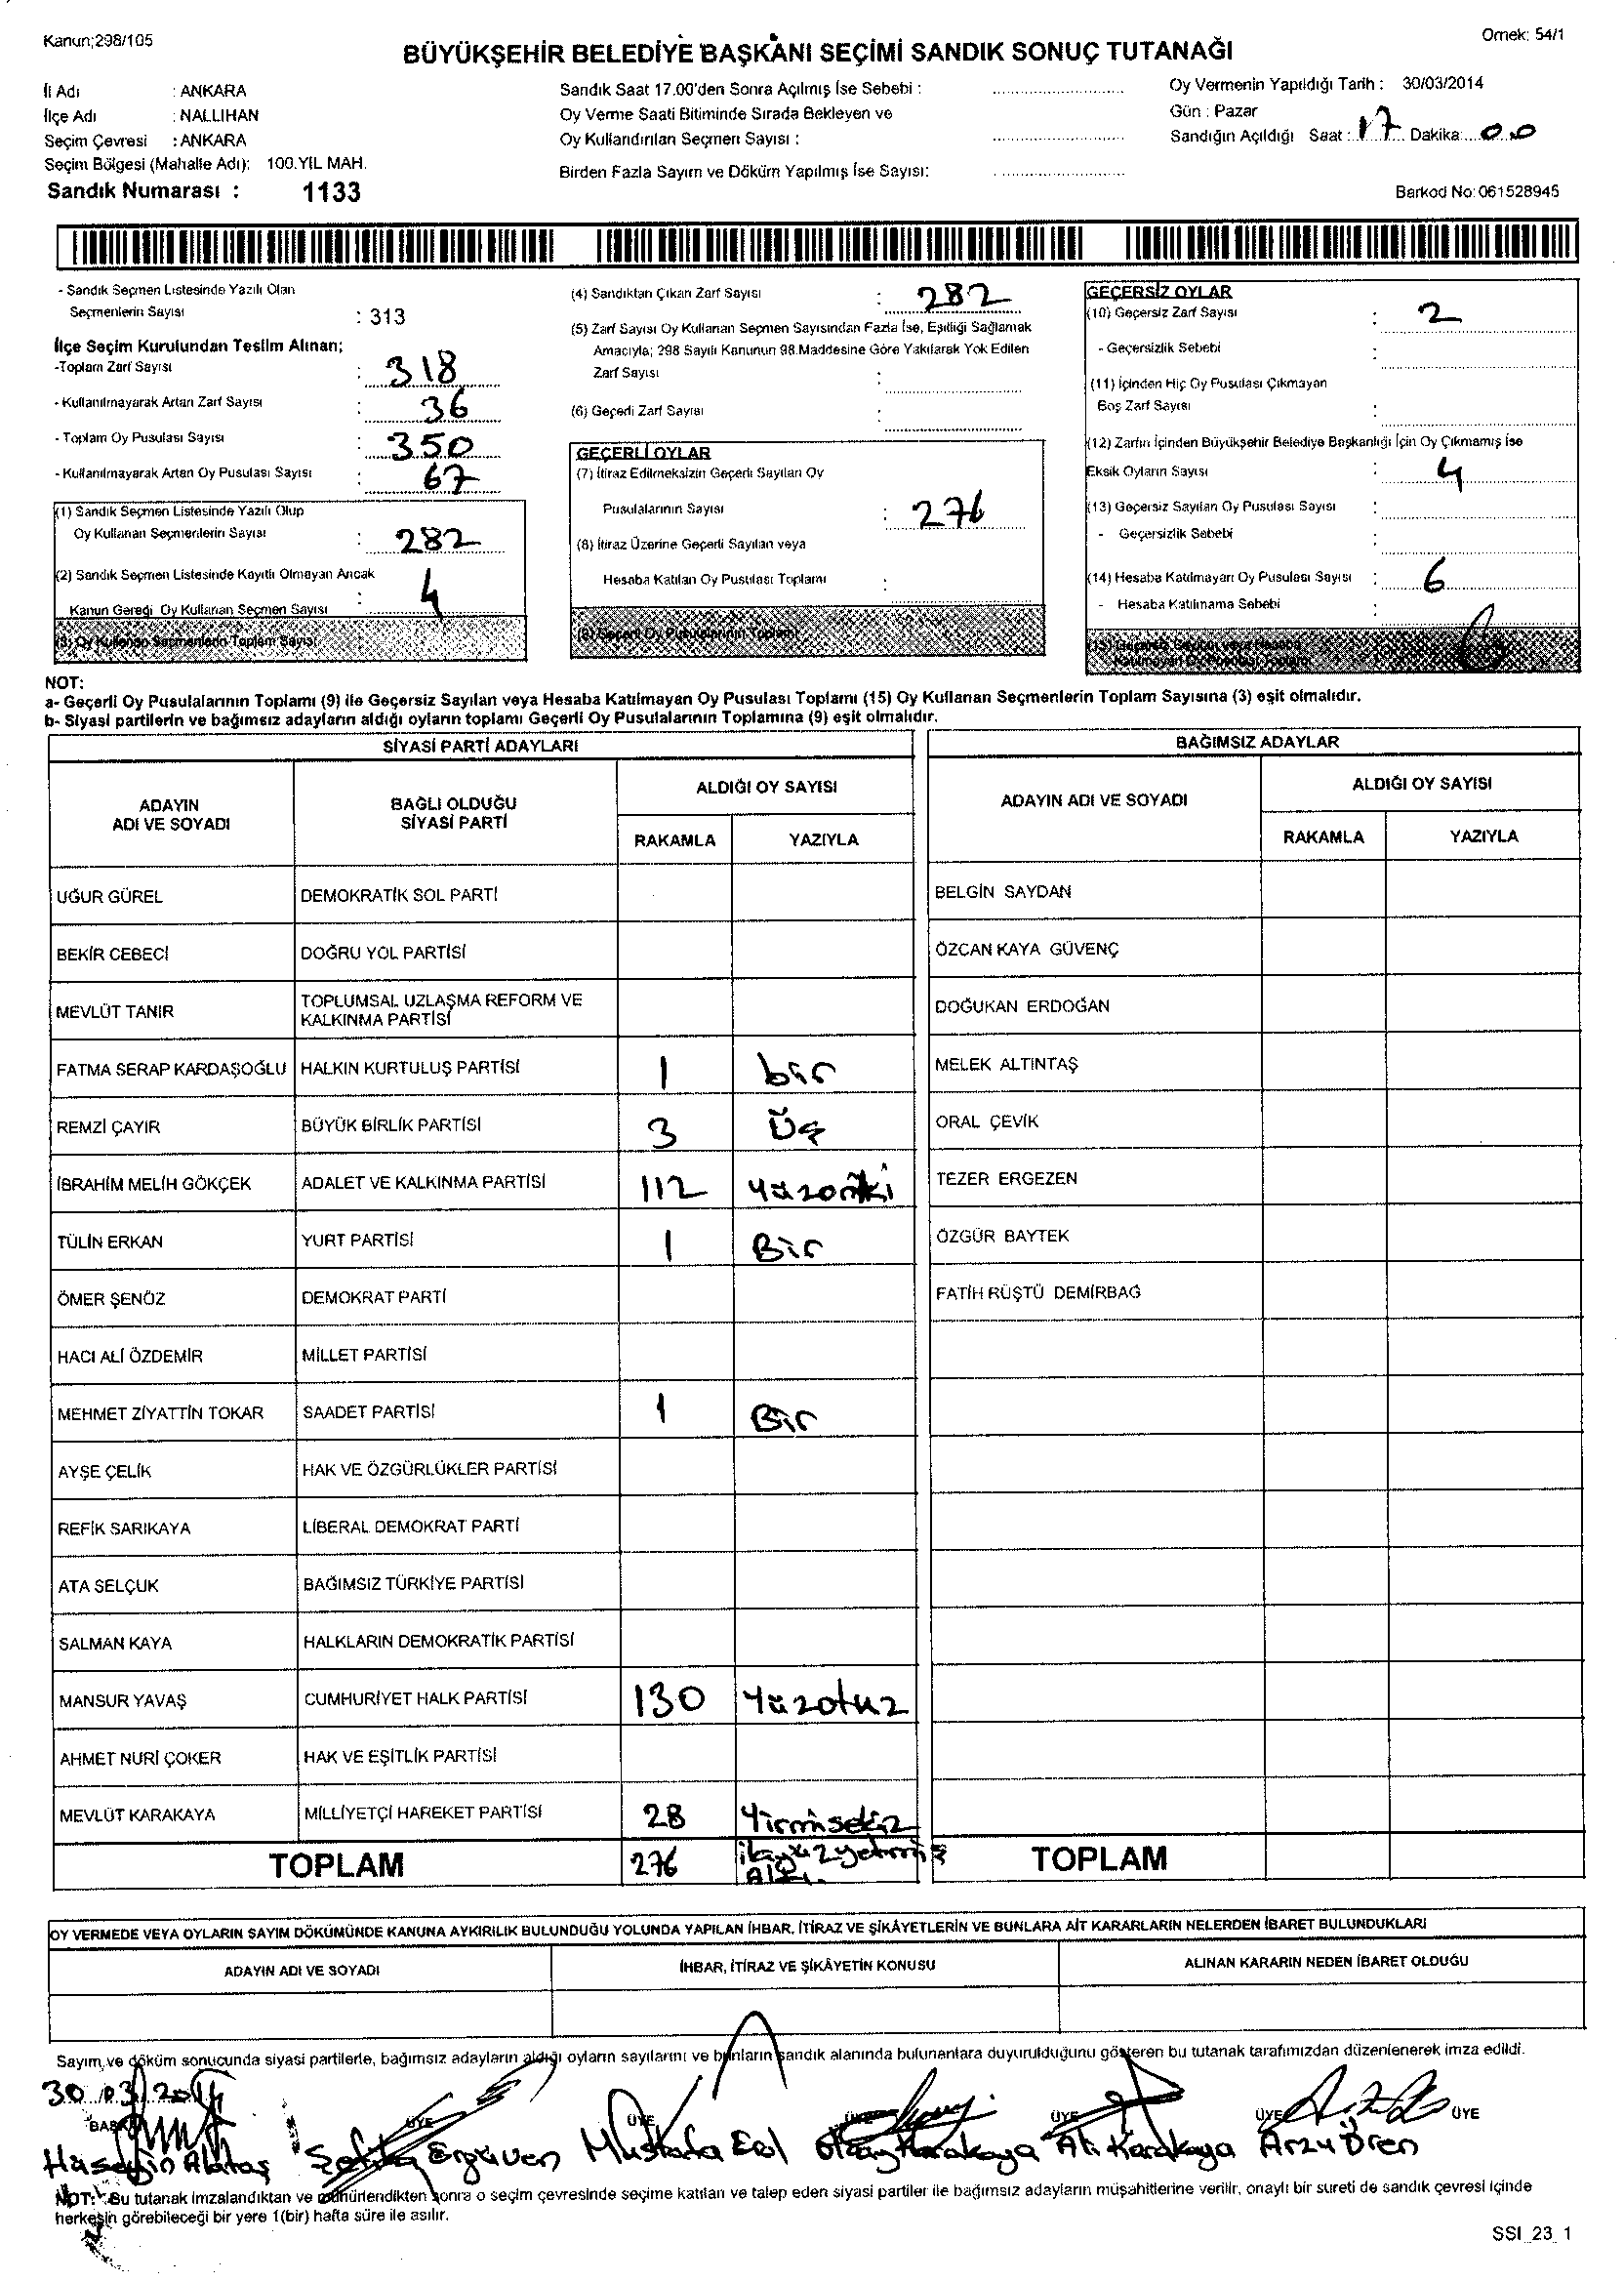 Kanun;298/105
Örnek: 54/1
BÜYÜKŞEHİR BELEDİYE BAŞKANI SEÇİMİ SANDIK SONUÇ TUTANAĞI
İl Adı : ANKARA
İlçe Adı : NALLIHAN
Seçim Çevresi : ANKARA
Seçim Bölgesi (Mahalle Adı); 100.YIL MAH.
Sandık Numarası : 1133
Sandık Saat 17.00'den Sonra Açılmış İse Sebebi :
Oy Verme Saati Bitiminde Sırada Bekleyen ve
Oy Kullandırılan Seçmen Sayısı :
Birden Fazla Sayım ve Döküm Yapılmış İse Sayısı:
Oy Vermenin Yapıldığı Tarih : 30/03/2014
Gün : Pazar
Sandığın Açıldığı Saat : 17 Dakika: 00
Barkod No: 061528945
- Sandık Seçmen Listesinde Yazılı Olan
Seçmenlerin Sayısı : 313
İlçe Seçim Kurulundan Teslim Alınan;
-Toplam Zarf Sayısı : 318
- Kullanılmayarak Artan Zarf Sayısı : 36
- Toplam Oy Pusulası Sayısı : 350
- Kullanılmayarak Artan Oy Pusulası Sayısı : 67
(1) Sandık Seçmen Listesinde Yazılı Olup
Oy Kullanan Seçmenlerin Sayısı : 282
(2) Sandık Seçmen Listesinde Kayıtlı Olmayan Ancak
Kanun Gereği Oy Kullanan Seçmen Sayısı : 4
(3) Oy Kullanan Seçmenlerin Toplam Sayısı :
(4) Sandıktan Çıkan Zarf Sayısı : 282
(5) Zarf Sayısı Oy Kullanan Seçmen Sayısından Fazla İse, Eşitliği Sağlamak
Amacıyla; 298 Sayılı Kanunun 98.Maddesine Göre Yakılarak Yok Edilen
Zarf Sayısı :
(6) Geçerli Zarf Sayısı :
GEÇERLİ OYLAR
(7) İtiraz Edilmeksizin Geçerli Sayılan Oy
Pusulalarının Sayısı : 276
(8) İtiraz Üzerine Geçerli Sayılan veya
Hesaba Katılan Oy Pusulası Toplamı :
(9) Geçerli Oy Pusulalarının Toplamı
GEÇERSİZ OYLAR
(10) Geçersiz Zarf Sayısı : 2
- Geçersizlik Sebebi :
(11) İçinden Hiç Oy Pusulası Çıkmayan
Boş Zarf Sayısı :
(12) Zarfın İçinden Büyükşehir Belediye Başkanlığı İçin Oy Çıkmamış İse
Eksik Oyların Sayısı : 4
(13) Geçersiz Sayılan Oy Pusulası Sayısı :
- Geçersizlik Sebebi :
(14) Hesaba Katılmayan Oy Pusulası Sayısı : 6
- Hesaba Katılmama Sebebi :
(15) Geçersiz Sayılan veya Hesaba
Katılmayan Oy Pusulası Toplamı : 6
NOT:
a- Geçerli Oy Pusulalarının Toplamı (9) ile Geçersiz Sayılan veya Hesaba Katılmayan Oy Pusulası Toplamı (15) Oy Kullanan Seçmenlerin Toplam Sayısına (3) eşit olmalıdır.
b- Siyasi partilerin ve bağımsız adayların aldığı oyların toplamı Geçerli Oy Pusulalarının Toplamına (9) eşit olmalıdır.
SİYASİ PARTİ ADAYLARI
ADAYIN ADI VE SOYADI
BAĞLI OLDUĞU SİYASİ PARTİ
ALDIĞI OY SAYISI
RAKAMLA YAZIYLA
UĞUR GÜREL DEMOKRATİK SOL PARTİ
BEKİR CEBECİ DOĞRU YOL PARTİSİ
MEVLÜT TANIR TOPLUMSAL UZLAŞMA REFORM VE KALKINMA PARTİSİ
FATMA SERAP KARDAŞOĞLU HALKIN KURTULUŞ PARTİSİ 1 bir
REMZİ ÇAYIR BÜYÜK BİRLİK PARTİSİ 3 Üç
İBRAHİM MELİH GÖKÇEK ADALET VE KALKINMA PARTİSİ 112 Yüzoniki
TÜLİN ERKAN YURT PARTİSİ 1 Bir
ÖMER ŞENÖZ DEMOKRAT PARTİ
HACI ALİ ÖZDEMİR MİLLET PARTİSİ
MEHMET ZİYATTİN TOKAR SAADET PARTİSİ 1 Bir
AYŞE ÇELİK HAK VE ÖZGÜRLÜKLER PARTİSİ
REFİK SARIKAYA LİBERAL DEMOKRAT PARTİ
ATA SELÇUK BAĞIMSIZ TÜRKİYE PARTİSİ
SALMAN KAYA HALKLARIN DEMOKRATİK PARTİSİ
MANSUR YAVAŞ CUMHURİYET HALK PARTİSİ 130 Yüzotuz
AHMET NURİ ÇOKER HAK VE EŞİTLİK PARTİSİ
MEVLÜT KARAKAYA MİLLİYETÇİ HAREKET PARTİSİ 28 Yirmisekiz
TOPLAM 276 ikiyüzyetmiş Altı.
BAĞIMSIZ ADAYLAR
ADAYIN ADI VE SOYADI
ALDIĞI OY SAYISI
RAKAMLA YAZIYLA
BELGİN SAYDAN
ÖZCAN KAYA GÜVENÇ
DOĞUKAN ERDOĞAN
MELEK ALTINTAŞ
ORAL ÇEVİK
TEZER ERGEZEN
ÖZGÜR BAYTEK
FATİH RÜŞTÜ DEMİRBAĞ
TOPLAM
OY VERMEDE VEYA OYLARIN SAYIM DÖKÜMÜNDE KANUNA AYKIRILIK BULUNDUĞU YOLUNDA YAPILAN İHBAR, İTİRAZ VE ŞİKÂYETLERİN VE BUNLARA AİT KARARLARIN NELERDEN İBARET BULUNDUKLARI
ADAYIN ADI VE SOYADI
İHBAR, İTİRAZ VE ŞİKÂYETİN KONUSU
ALINAN KARARIN NEDEN İBARET OLDUĞU
Sayım ve döküm sonucunda siyasi partilerle, bağımsız adayların aldığı oyların sayılarını ve bunların sandık alanında bulunanlara duyurulduğunu gösteren bu tutanak tarafımızdan düzenlenerek imza edildi.
30.03.2014
ÜYE ÜYE ÜYE ÜYE ÜYE ÜYE
Hüseyin Alataş Ergüven Mustafa Erol Olcay Karakaya Ali Karakaya Arzu Ören
NOT: Bu tutanak imzalandıktan ve mühürlendikten sonra o seçim çevresinde seçime katılan ve talep eden siyasi partiler ile bağımsız adayların müşahitlerine verilir, onaylı bir sureti de sandık çevresi içinde
herkesin görebileceği bir yere 1(bir) hafta süre ile asılır.
SSI_23_1